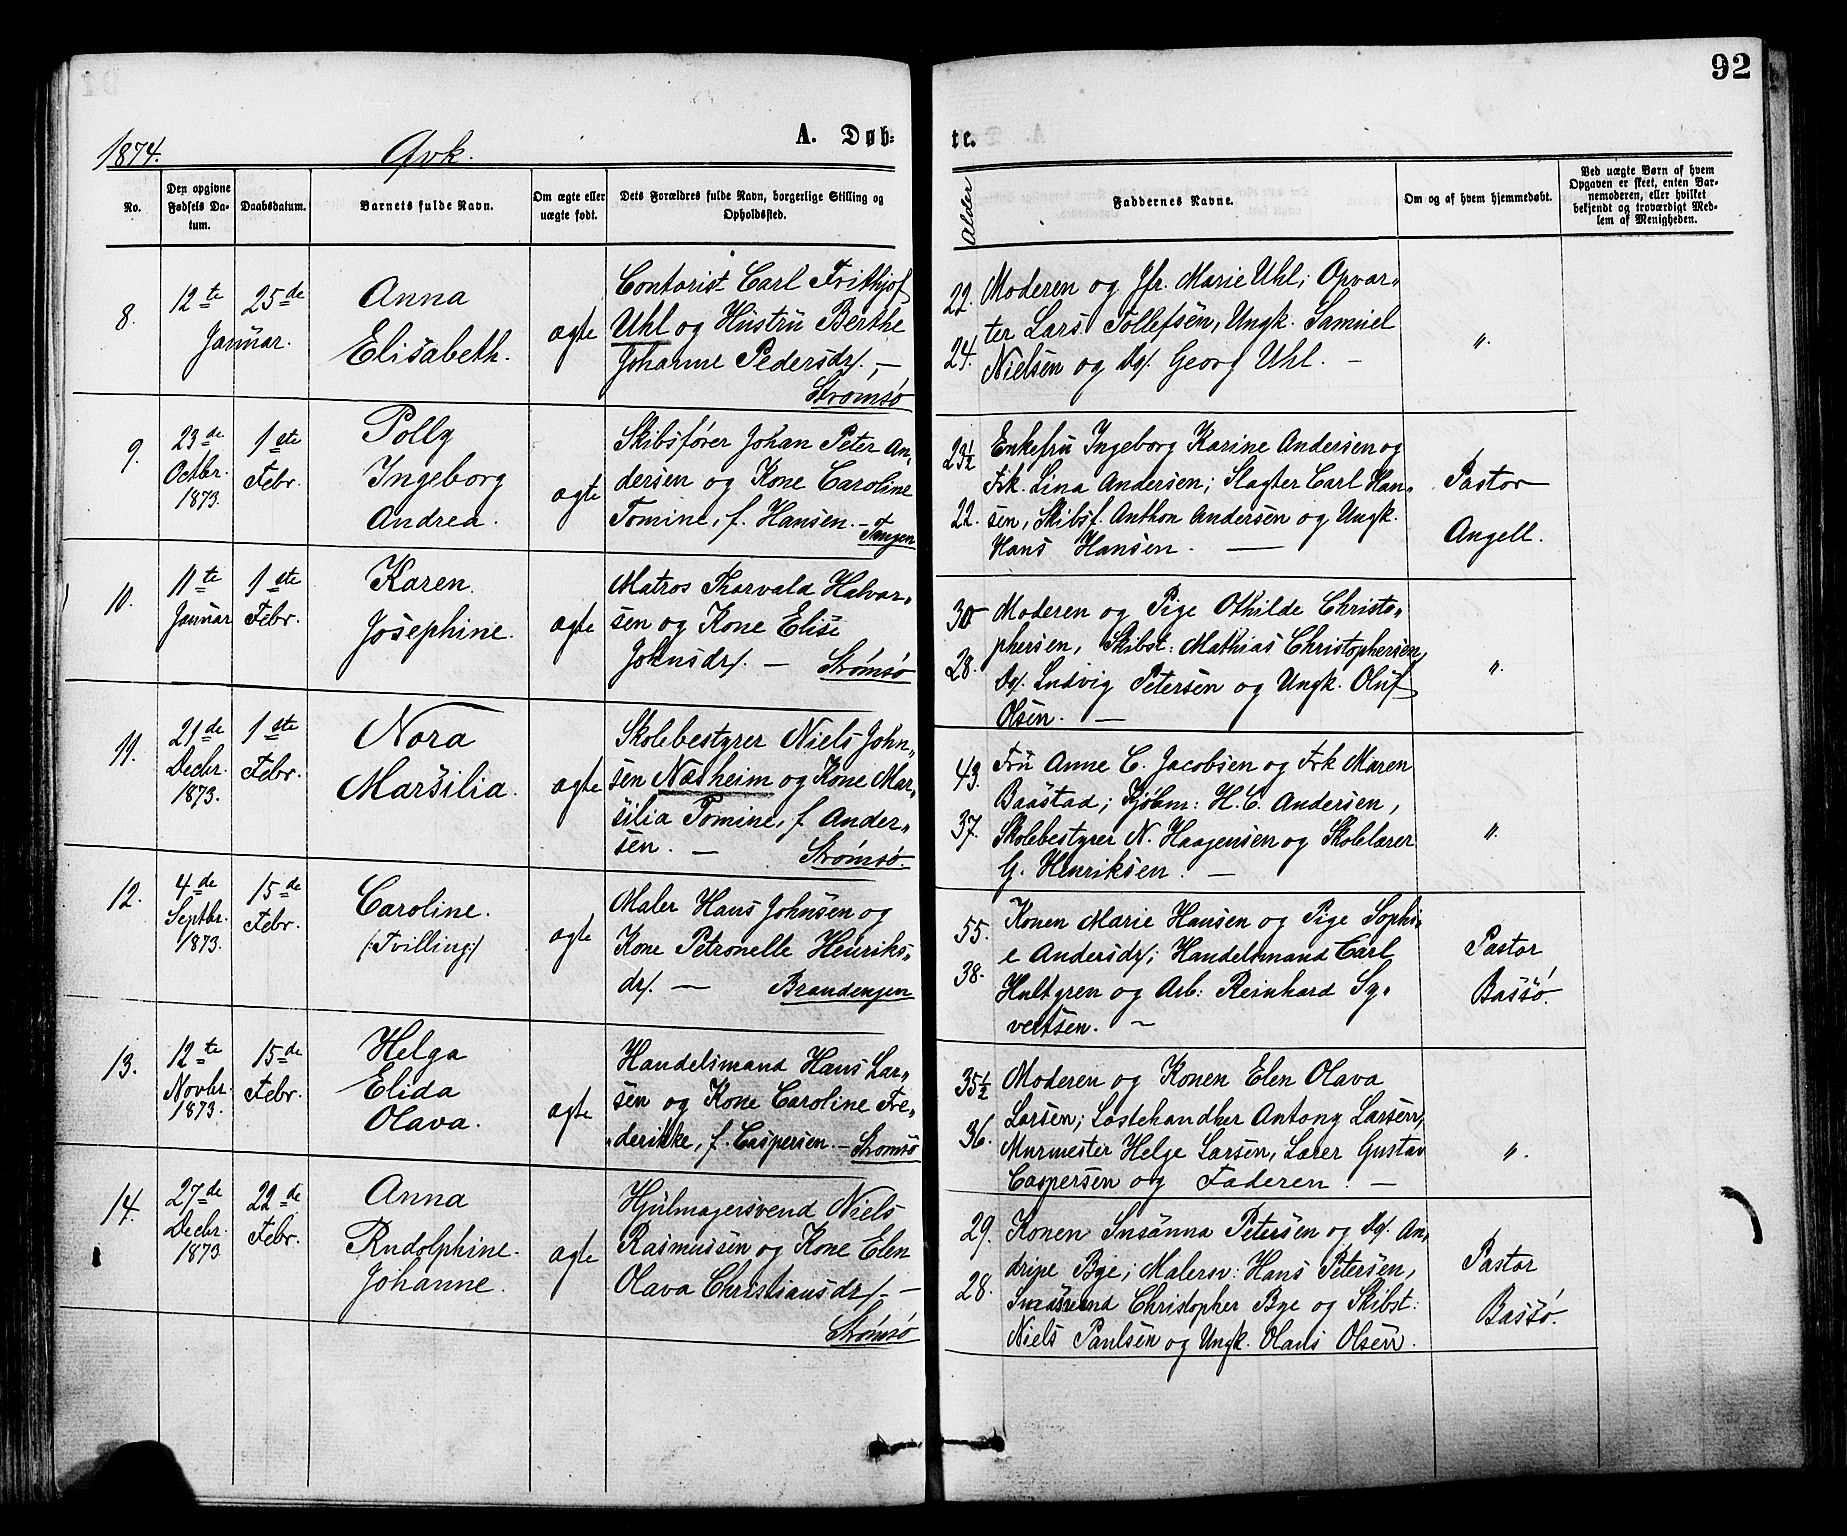 92
1874. Qvk. A. Døb- te.
No.
Den opgivne Fødsels Da- tum.
Daabsdatum.
Barnets fulde Navn.
Om ægte eller uægte født.
Dets Forældres fulde Navn, borgerlige Stilling og Opholdssted.
Alder
Faddernes Navne.
Om og af hvem hjemmedøbt.
Ved uægte Børn af hvem Opgaven er skeet, enten Bar- nemoderen, eller hvilket bekjendt og troværdigt Med- lem af Menigheden.
8.
12te 25de
Januar.
Anna
Elisabeth.
ægte
Contorist Carl Frithjof
Uhl og Hustru Berthe
Johanne Pedersdr/. —
Strømsø
22.
24.
Moderen og Jfr. Marie Uhl; Opvar-
ter Lars Tollefsen, Ungk. Samuel
Nielsen og do/. Georg Uhl. —
"
9.
23de
Octbr.
1873.
1ste
Febr.
Polly
Ingeborg
Andrea.
ægte
Skibsfører Johan Peter An-
dersen og Kone Caroline
Tomine, f. Hansen. — Tangen
23½
22.
Enkefru Ingeborg Karine Andersen og
Frk. Lina Andersen; Slagter Carl Han-
sen, Skibsf. Anthon Andersen og Ungk.
Hans Hansen. —
Pastor
Angell.
10.
11te
Januar
1ste
Febr.
Karen
Josephine.
ægte
Matros Thorvald Halvor-
sen og Kone Elise
Johnsdr/. — Strømsø
30
28.
Moderen og Pige Othilde Christo-
phersen, Skibst: Mathias Christophersen,
do/. Ludvig Petersen og Ungk. Oluf
Olsen. —
"
11.
21de
Decbr.
1873.
1ste
Febr.
Nora
Marsilia.
ægte
Skolebestyrer Niels John-
sen Næsheim og Kone Mar-
silia Tomine, f. Ander-
sen. — Strømsø.
43.
37.
Fru Anne C. Jacobsen og Frk Maren
Baastad; Kjøbm: H. C. Andersen,
Skolebestyrer N. Haagensen og Skolelærer
G. Henriksen. —
"
12.
4de
Septbr.
1873.
15de
Febr.
Caroline.
(:Tvilling:)
ægte
Maler Hans Johnsen og
Kone Petronelle Henriks-
dr/. — Brandengen
55.
38.
Konen Marie Hansen og Pige Sophi-
e Andersdr/; Handelsmand Carl
Hultgren og Arb: Reinhard Sy-
vertsen. —
Pastor
Bassø.
13.
12te
Novbr.
1873.
15de
Febr.
Helga
Elida
Olava.
ægte
Handelsmand Hans Lar-
sen og Kone Caroline Fre-
derikke, f. Caspersen. — Strømsø
35½
36.
Moderen og Konen Elen Olava
Larsen; Lostehandler Antony Larsen,
Murmester Helge Larsen, Lærer Gustav
Caspersen og Faderen. —
"
14.
27de
Decbr.
1873
22de
Febr.
Anna
Rudolphine
Johanne.
ægte
Hjulmagersvend Niels
Rasmussen og Kone Elen
Olava Christiansdr/. —
Strømsø
29.
28.
Konen Susanna Petersen og do/. An-
dripe Bye; Malersv: Hans Petersen,
Christopher Bye og Skibst:
Niels Paulsen og Ungk. Olaus Olsen.
Pastor
Bassø.